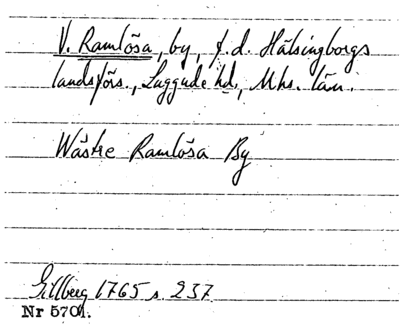 V. Ramlösa, by, f.d. Hälsingborgs
landsförs., Luggude hd., Mhs. län.
Wästre Ramlösa By
Gillberg 1765 s. 237
Nr 5701.